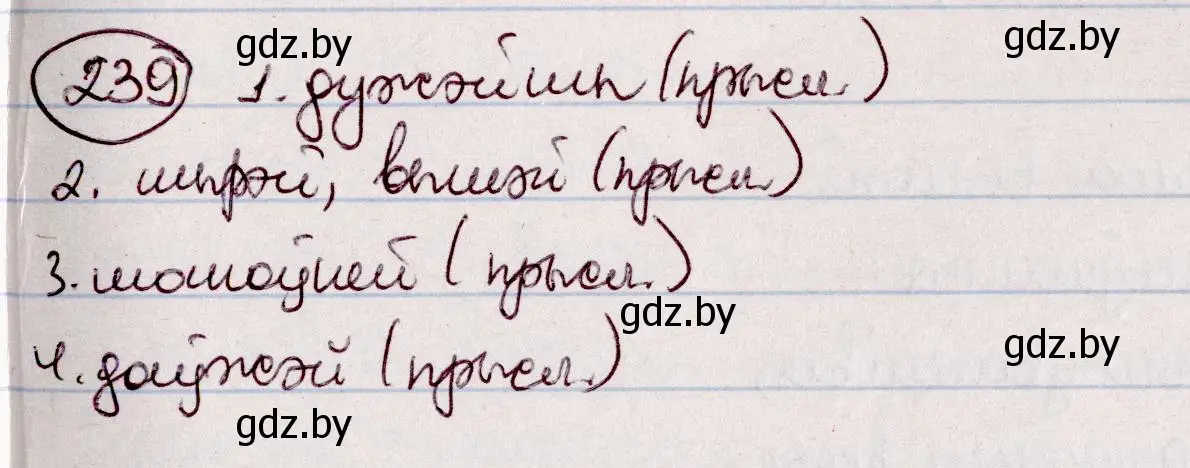 239 1. дужэйшы (прысл.) gdz.by gdz.by
2. шырэй, вышэй (прысл.)
3. шматоўней (прысл.) gdz.by
4. даўжэй (прысл.) gdz.by
gdz.by